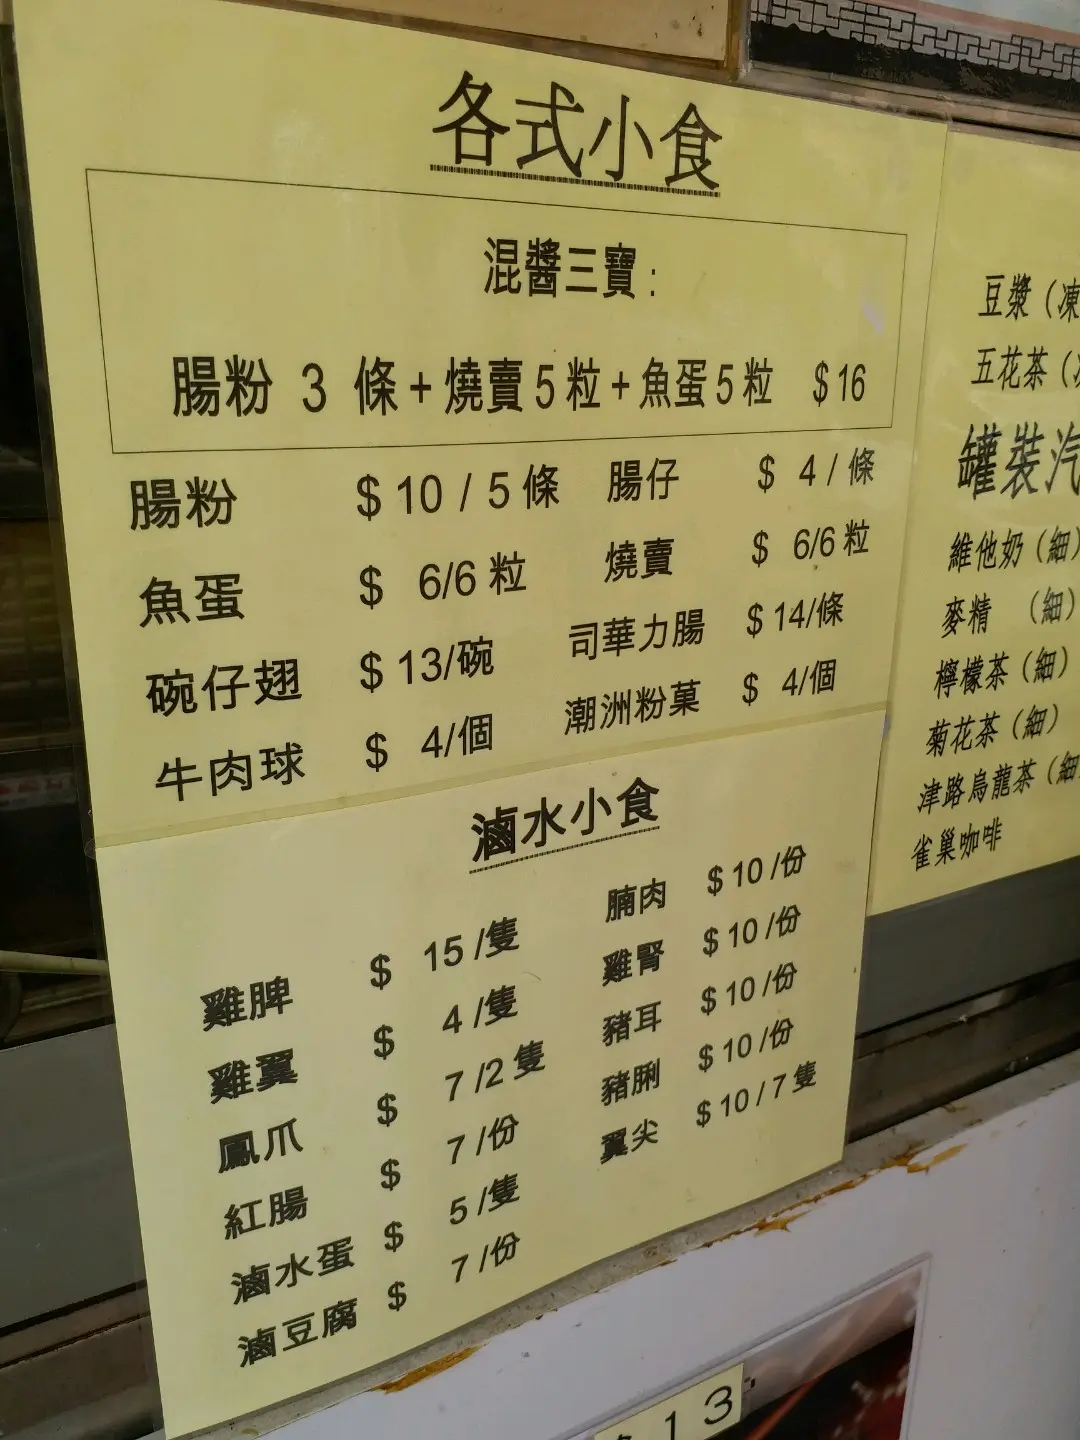 各式小食
混醬三寶：
腸粉 3 條+燒賣5粒+魚蛋5粒 $16
腸粉 $10/5條 腸仔 $ 4/條
魚蛋 $ 6/6粒 燒賣 $ 6/6粒
碗仔翅 $13/碗 司華力腸 $14/條
牛肉球 $ 4/個 潮洲粉菓 $ 4/個
滷水小食
雞脾 $ 15/隻 腩肉 $10/份
雞翼 $ 4/隻 雞腎 $10/份
鳳爪 $ 7/2隻 豬耳 $10/份
紅腸 $ 7/份 豬脷 $10/份
滷水蛋 $ 5/隻 翼尖 $10/7隻
滷豆腐 $ 7/份
豆漿（凍
五花茶（
罐裝汽
維他奶（細）
麥精 （細）
檸檬茶（細）
菊花茶（細）
津路烏龍茶（細
雀巢咖啡
13